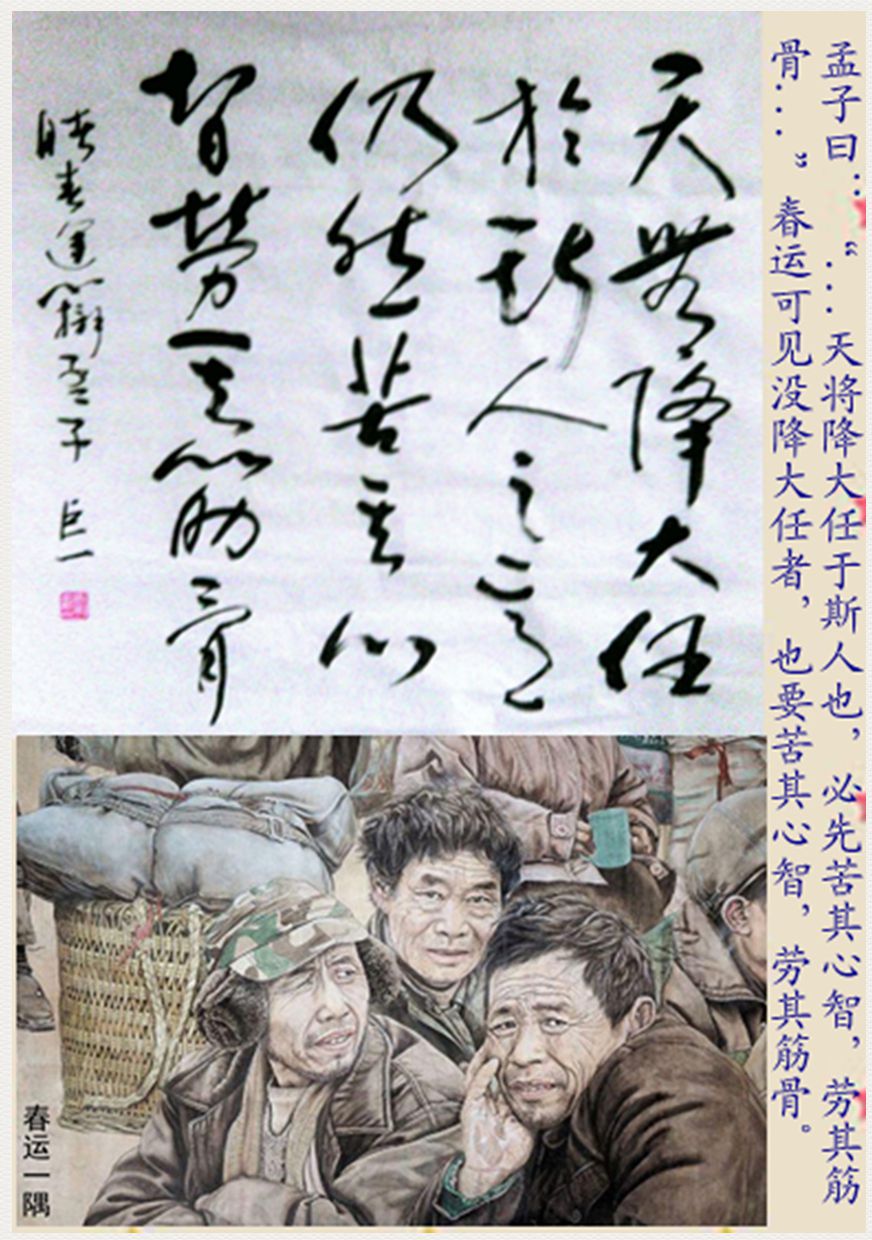 孟子曰：“...天将降大任于斯人也，必先苦其心智，劳其筋
骨...”春运可见没降大任者，也要苦其心智，劳其筋骨。
天無降大任
於斯人之言
仍然苦其心
智勞其筋骨
春運 孟子 巨一
春运一隅